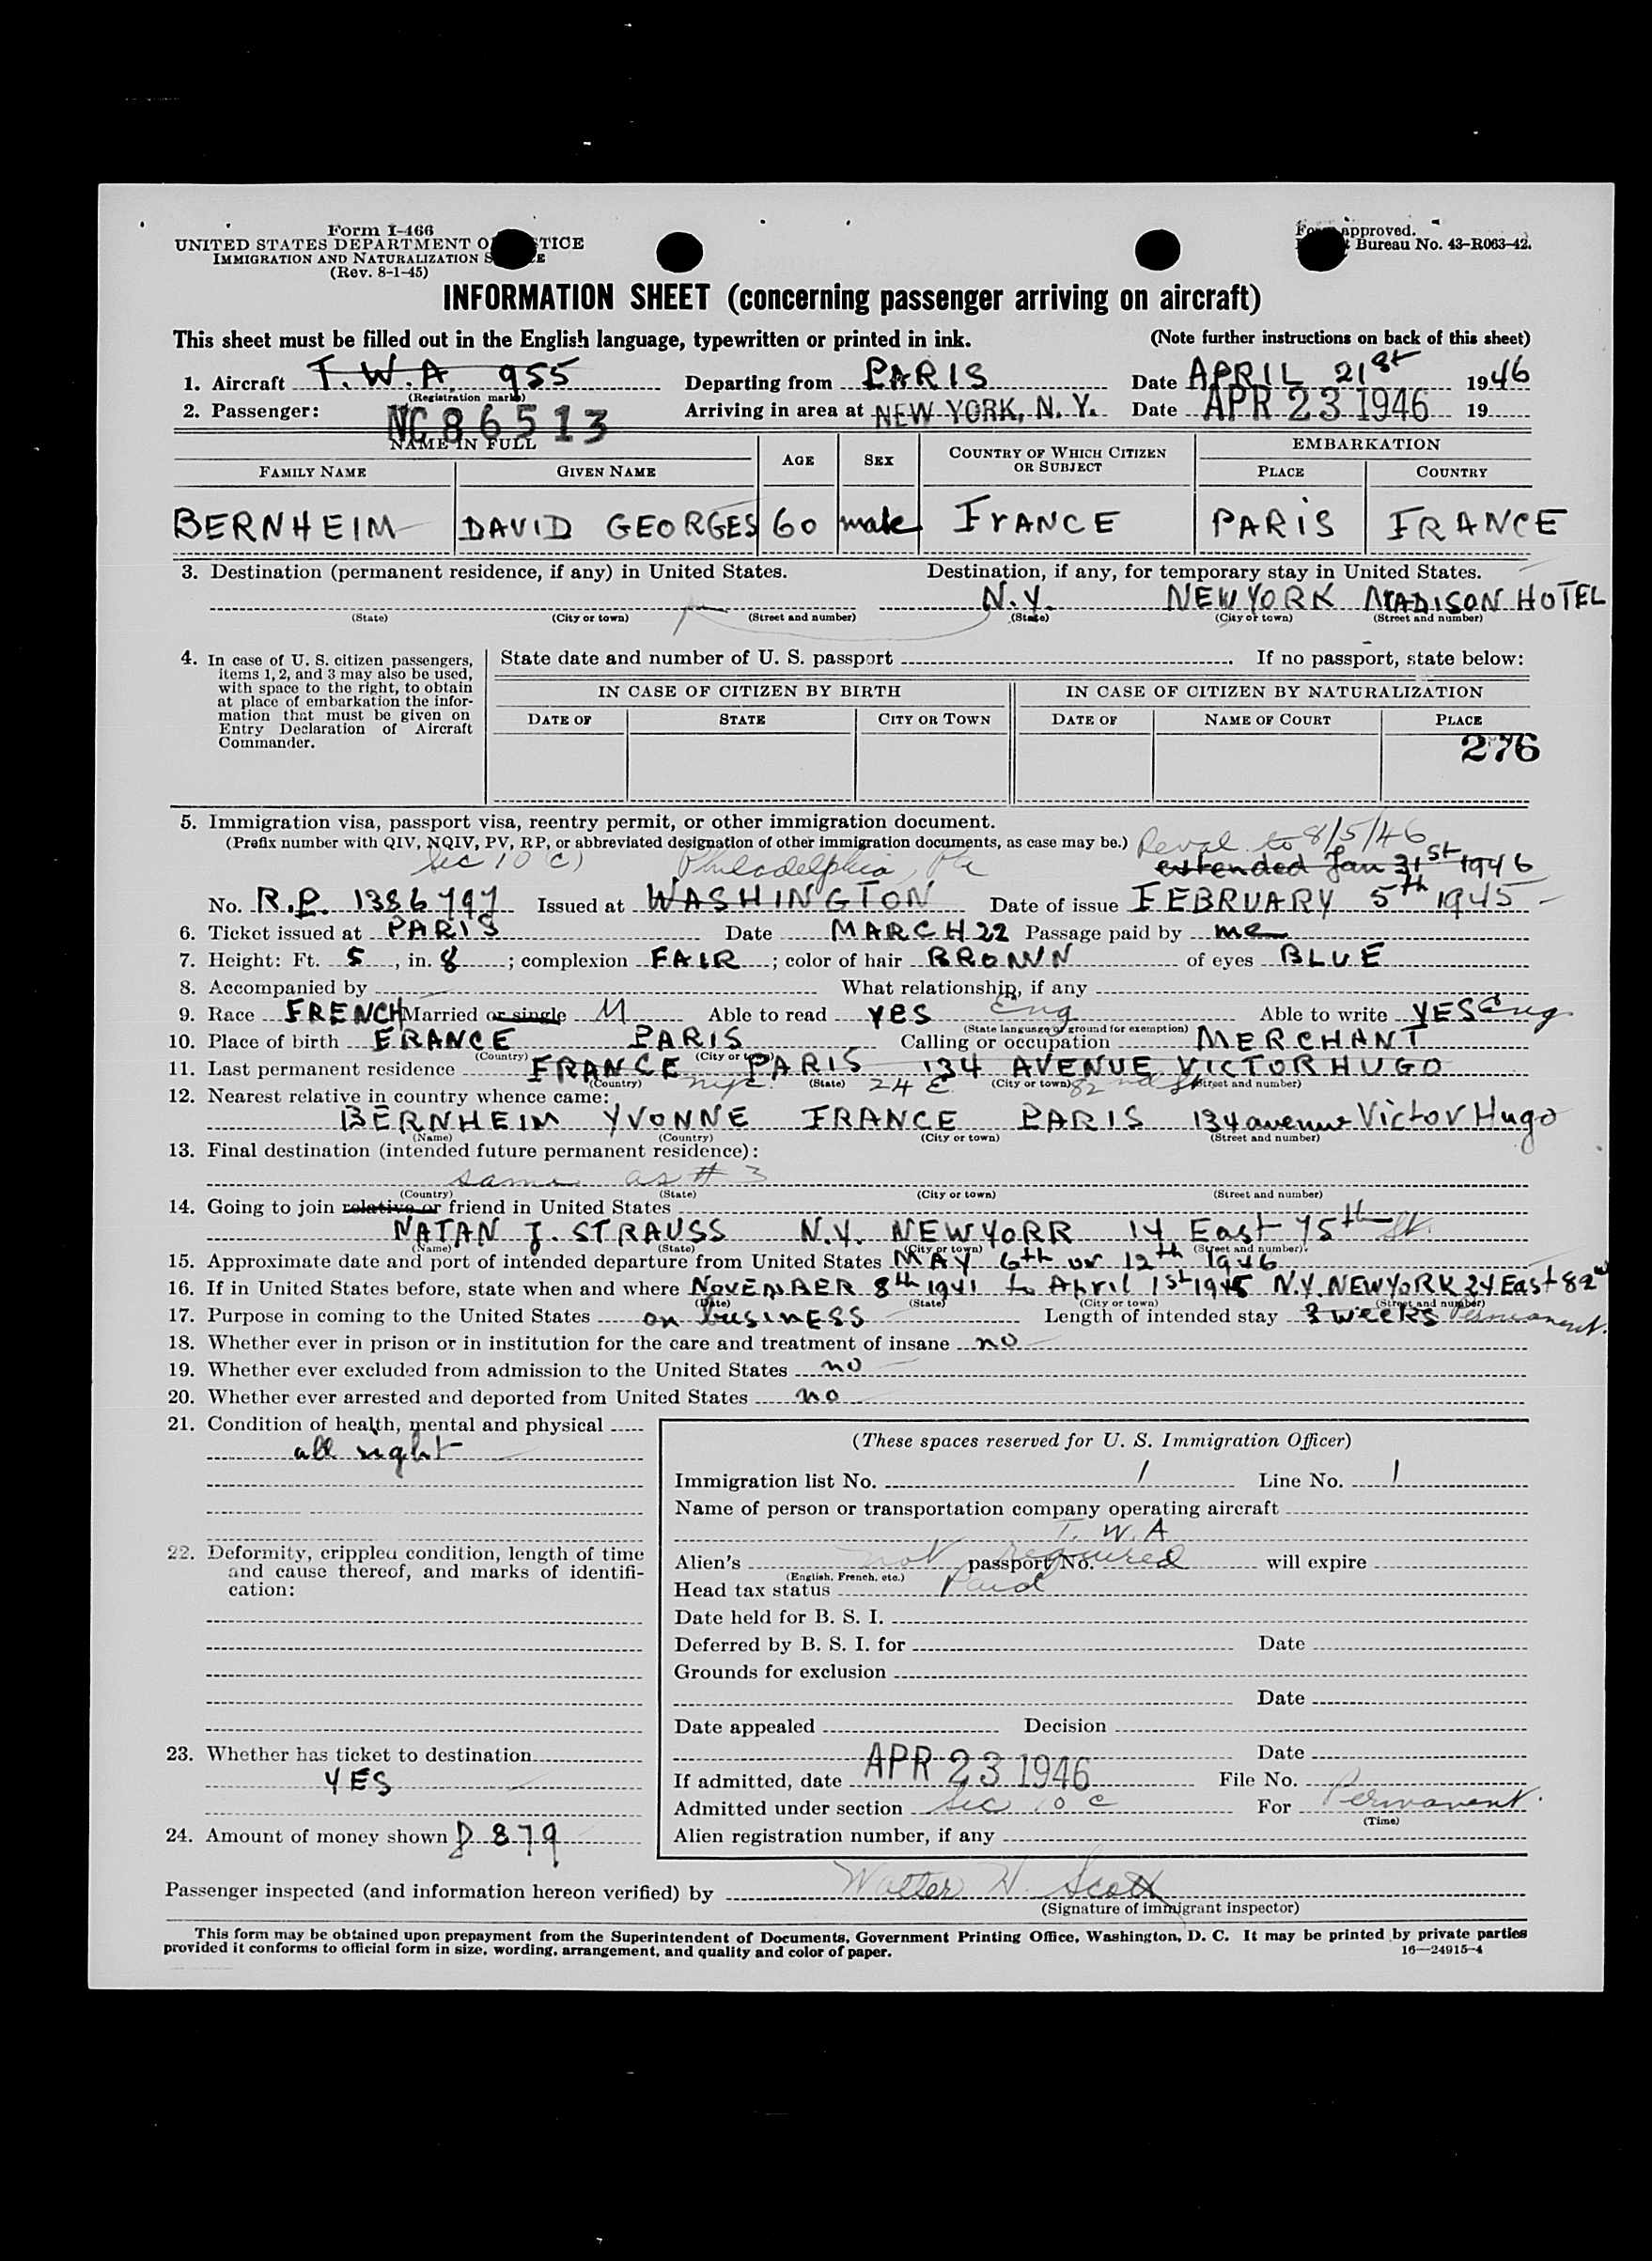 Form I-466
UNITED STATES DEPARTMENT O TICE
IMMIGRATION AND NATURALIZATION S E
(Rev. 8-1-45)
approved.
Bureau No. 43-R063-42.
INFORMATION SHEET (concerning passenger arriving on aircraft)
This sheet must be filled out in the English language, typewritten or printed in ink. (Note further instructions on back of this sheet)
1. Aircraft T.W.A. 955 Departing from PARIS Date APRIL 21st 1946
(Registration marks)
2. Passenger: NC 86513 Arriving in area at NEW YORK, N. Y. Date APR 23 1946 19
NAME IN FULL AGE SEX COUNTRY OF WHICH CITIZEN OR SUBJECT EMBARKATION
FAMILY NAME GIVEN NAME PLACE COUNTRY
BERNHEIM DAVID GEORGES 60 male FRANCE PARIS FRANCE
3. Destination (permanent residence, if any) in United States. Destination, if any, for temporary stay in United States.
N.Y. NEW YORK MADISON HOTEL
(State) (City or town) (Street and number) (State) (City or town) (Street and number)
4. In case of U. S. citizen passengers, items 1, 2, and 3 may also be used, with space to the right, to obtain at place of embarkation the information that must be given on Entry Declaration of Aircraft Commander.
State date and number of U. S. passport . If no passport, state below:
IN CASE OF CITIZEN BY BIRTH IN CASE OF CITIZEN BY NATURALIZATION
DATE OF STATE CITY OR TOWN DATE OF NAME OF COURT PLACE
276
5. Immigration visa, passport visa, reentry permit, or other immigration document.
(Prefix number with QIV, NQIV, PV, RP, or abbreviated designation of other immigration documents, as case may be.) to 8/5/46
Sec 10 C) Philadelphia, Pa extended Jan 31st 1946
No. R.P. 1386797 Issued at WASHINGTON Date of issue FEBRUARY 5th 1945
6. Ticket issued at PARIS Date MARCH 22 Passage paid by me
7. Height: Ft. 5, in. 8; complexion FAIR; color of hair BROWN of eyes BLUE
8. Accompanied by What relationship, if any
9. Race FRENCH Married or single M Able to read yes Eng Able to write YES Eng
(State language or ground for exemption)
10. Place of birth FRANCE PARIS Calling or occupation MERCHANT
(Country) (City or town)
11. Last permanent residence FRANCE PARIS 134 AVENUE VICTOR HUGO
(Country) (State) (City or town) (Street and number)
nyc. 24 E 82nd St
12. Nearest relative in country whence came:
BERNHEIM YVONNE FRANCE PARIS 134 avenue Victor Hugo
(Name) (Country) (City or town) (Street and number)
13. Final destination (intended future permanent residence):
same as # 3
(Country) (State) (City or town) (Street and number)
14. Going to join relative or friend in United States
NATAN J. STRAUSS N.Y. NEW YORK 14 East 75th St.
(Name) (State) (City or town) (Street and number)
15. Approximate date and port of intended departure from United States MAY 6th or 12th 1946
16. If in United States before, state when and where NOVEMBER 8th 1941 to April 1st 1945 N.Y. NEW YORK 24 East 82nd
(Date) (State) (City or town) (Street and number)
17. Purpose in coming to the United States on business Length of intended stay 3 weeks Permanent.
18. Whether ever in prison or in institution for the care and treatment of insane no
19. Whether ever excluded from admission to the United States no
20. Whether ever arrested and deported from United States no
21. Condition of health, mental and physical
all right
22. Deformity, crippled condition, length of time and cause thereof, and marks of identification:
23. Whether has ticket to destination
YES
24. Amount of money shown $ 879
(These spaces reserved for U. S. Immigration Officer)
Immigration list No. 1 Line No. 1
Name of person or transportation company operating aircraft
T. W. A
Alien's not passport No. required will expire
(English, French, etc.)
Head tax status Paid
Date held for B. S. I.
Deferred by B. S. I. for Date
Grounds for exclusion
Date
Date appealed Decision
Date
If admitted, date APR 23 1946 File No.
Admitted under section Sec 10 c For Permanent.
(Time)
Alien registration number, if any
Passenger inspected (and information hereon verified) by Walter H. Scott
(Signature of immigrant inspector)
This form may be obtained upon prepayment from the Superintendent of Documents, Government Printing Office, Washington, D. C. It may be printed by private parties
provided it conforms to official form in size, wording, arrangement, and quality and color of paper. 16—24915-4